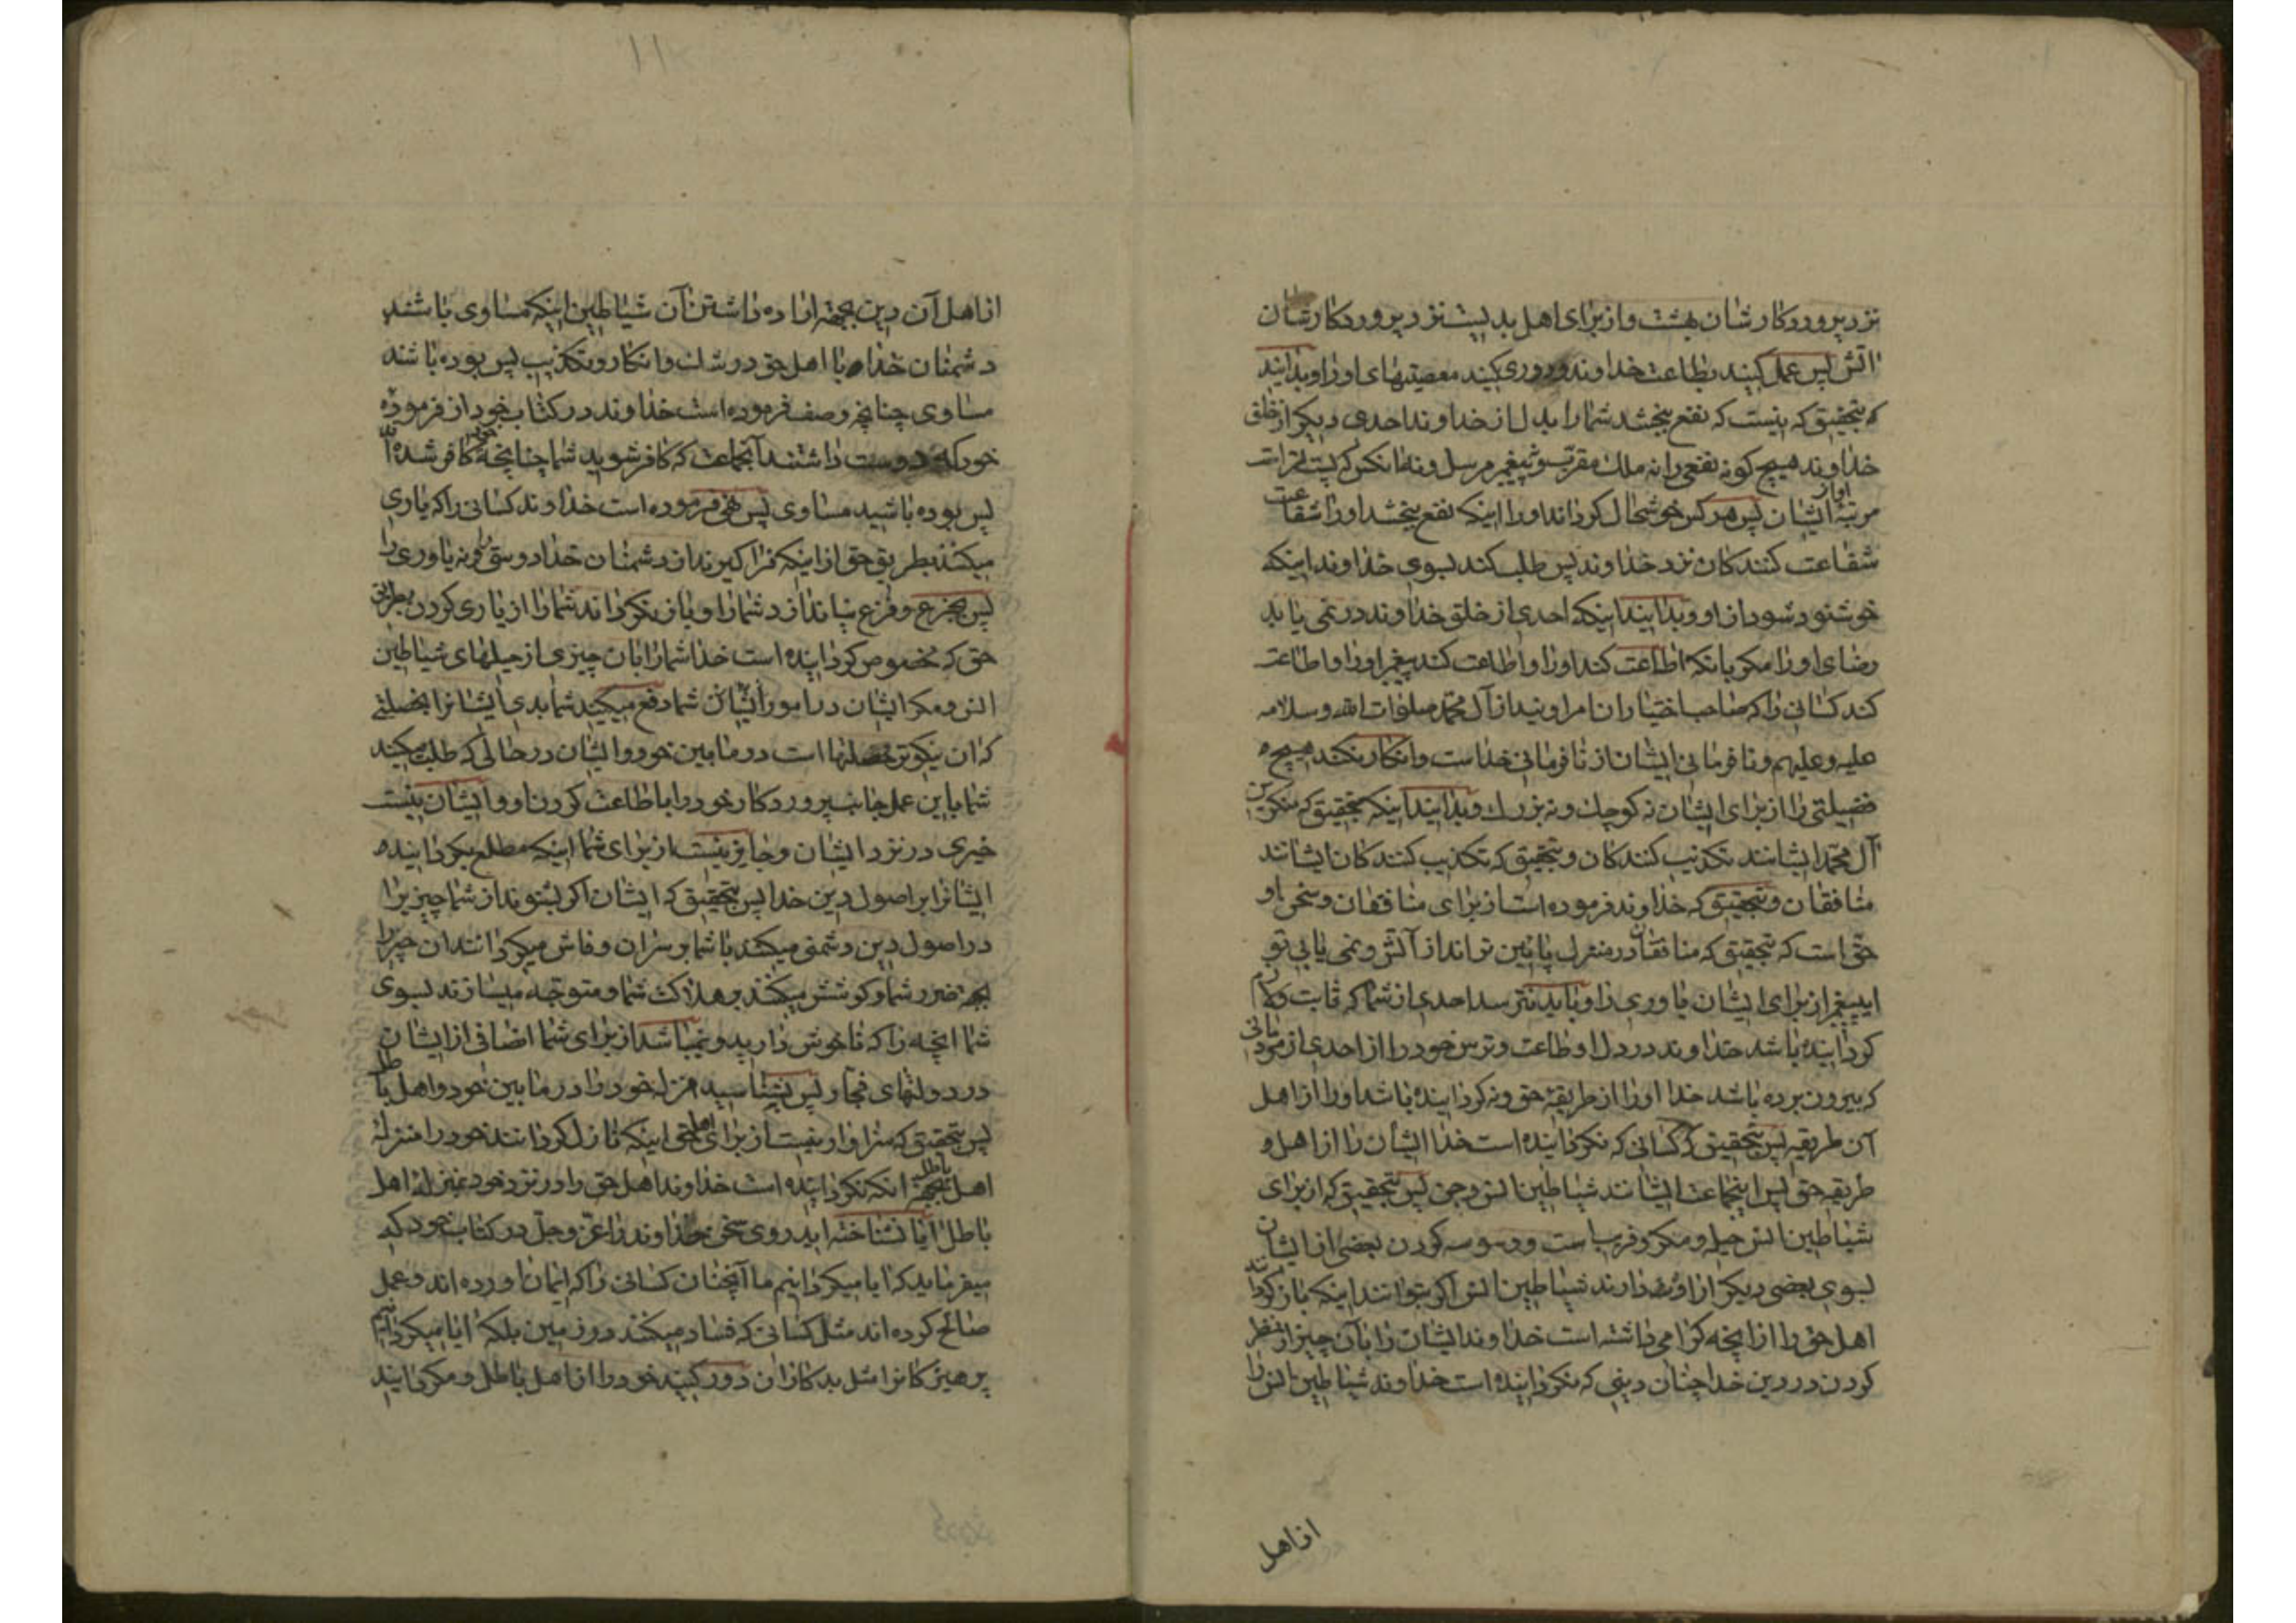 نزد پروردکارشان بهشت و از برای اهل بدیست نزد پروردکارشان
اتش پس عمل کنید بطاعت خداوند و دوری کنید معصیتهای اورا و بدانید
که بتحقیق که نیست که نفع بخشد شما را بدل از خداوند احدی دیکر از خلق
خداوند هیچ کونه نفعی را نه ملک مقرب و نه پیغمبر مرسل و نه انکس که پست تر است
مرتبهٔ او از ایشان پس هر کس خوشحال کرداند او را اینکه نفع بخشد او را شفاعت
شفاعت کنندکان نزد خداوند پس طلب کند بسوی خداوند اینکه
خوشنود شود از او و بدانید اینکه احدی از خلق خداوند در نمی یابد
رضای او را مکر بانکه اطاعت کند او را و اطاعت کند پیغمبر او را و اطاعت
کند کسانی را که صاحب اختیاران امر اویند از آل محمد صلوات الله و سلامه
علیه و علیهم و نافرمانی ایشان از نافرمانی خداست و انکار نکند هیچ
فضیلتی را از برای ایشان نه کوچک و نه بزرک و بدانید اینکه بتحقیق که منکرین
آل محمد ایشانند تکذیب کنندکان و بتحقیق که تکذیب کنندکان ایشانند
منافقان و بتحقیق که خداوند فرموده است از برای منافقان و سخن او
حق است که بتحقیق که منافقان در منزل پائین تر اند از آتش و نمی یابی تو
ای پیغمبر از برای ایشان یاوری را و باید نترسد احدی از شما که ثابت و لازم
کردانیده باشد خداوند در دل او طاعت و ترس خود را از احدی از مردمانی
که بیرون برده باشد خدا او را از طریقهٔ حق و نه کردانیده باشد او را از اهل
آن طریقه پس بتحقیق که کسانی که نکردانیده است خدا ایشان را از اهل و
طریقه حق پس اینجماعت ایشانند شیاطین انس و جن پس بتحقیق که از برای
شیاطین انس حیله و مکر و فریب است و وسوسه کردن بعضی از ایشان
بسوی بعضی دیکر اراده دارند شیاطین انس اکر بتوانند اینکه باز کردانند
اهل حق را از انچه کرامی داشته است خداوند ایشان را بآن چیز از نظر
کردن در دین خدا چنان دینی که نکردانیده است خداوند شیاطین انس را
از اهل
۱۱
از اهل آن دین بجهة اراده داشتن آن شیاطین اینکه مساوی باشند
دشمنان خدا با اهل حق در شک و انکار و تکذیب پس بوده باشند
مساوی چنانچه وصف فرموده است خداوند در کتاب خود از فرموده
خود که دوست داشتند آنجماعت که کافر شوید شما چنانچه خود کافر شده اند
پس بوده باشید مساوی پس نهی فرموده است خداوند کسانی را که یاری
میکنند بطریق حق از اینکه فرا کیرند از دشمنان خدا دوستی را و نه یاوری را
پس بجزع و فزع نیاندازد شما را و باز نکرداند شما را از یاری کردن بطریق
حق که مخصوص کردانیده است خدا شما را بان چیزی از حیلهای شیاطین
انس و مکر ایشان در امور ایشان شما دفع میکنید شما بدی ایشانرا بخصلتی
که ان نیکوتر خصلتها است در ما بین خود و ایشان در حالی که طلب میکنید
شما باین عمل جانب پروردکار خود را باطاعت کردن او و ایشان نیست
خیری در نزد ایشان و جایز نیست از برای شما اینکه مطلع بکردانیده
ایشانرا بر اصول دین خدا پس بتحقیق که ایشان اکر بشنوند از شما چیزیرا
در اصول دین دشمنی میکنند با شما بر سر ان و فاش میکردانند ان چیز را
بجهة ضرر شما و کوشش میکنند بر هلاک شما و متوجه میسازند بسوی
شما انچه را که ناخوش دارید و نمیباشد از برای شما انصافی از ایشان
در دولتهای فجار پس بشناسید منزله خود را در ما بین خود و اهل باطل
پس بتحقیق که سزاوار نیست از برای اهل حق اینکه نازل کردانند خود را منزله
اهل باطل بجهة انکه نکردانیده است خداوند اهل حق را در نزد خود بمنزله اهل
باطل آیا نشناخته اید روی سخن خداوند را عز و جل در کتاب خود که
میفرماید که ایا میکردانیم ما آنچنان کسانی را که ایمان اورده اند و عمل
صالح کرده اند مثل کسانی که فساد میکنند در زمین بلکه ایا میکردانیم
پرهیزکانرا مثل بدکاران دور کنید خود را از اهل باطل و مکردانید